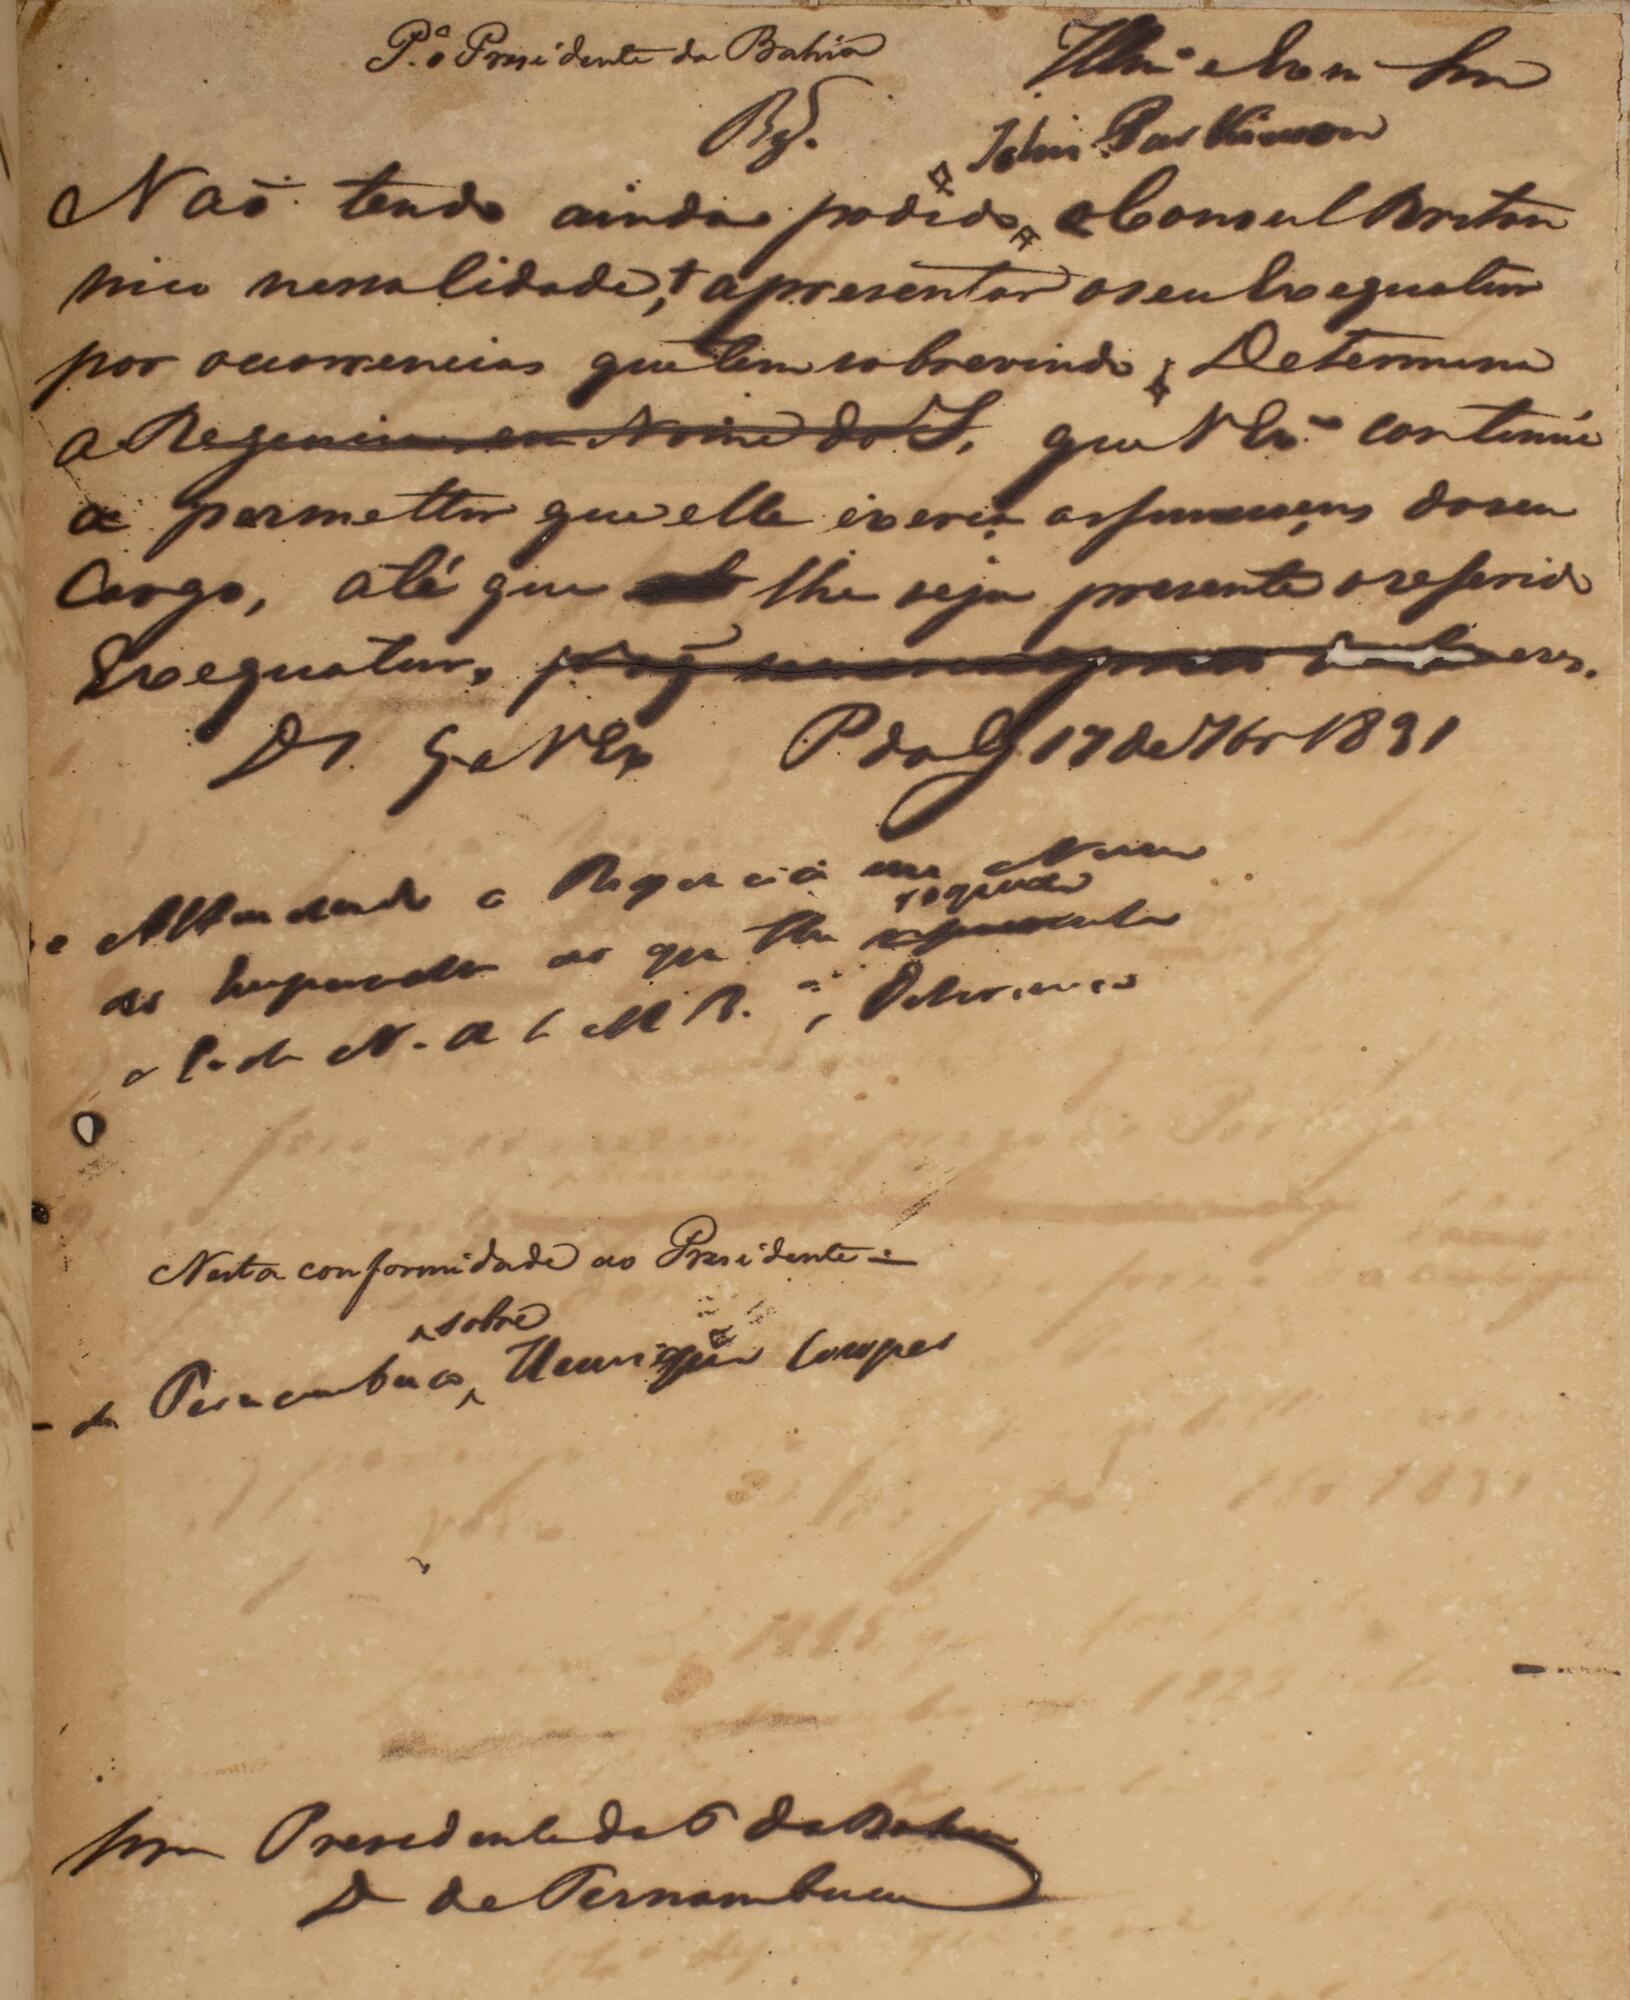 P.ª o Presidente da Bahia
Illmo e Exm Snr
Rg.do
John Parkinson
Não tendo ainda podido o Consul Britan
nico nessa Cidade, apresentar o seu Exequatur
por ocorrencias que tem sobrevindo, Determina
a Regencia em Nome do I. que V Exª continúe
a permettir que elle exerça as funcçoens do seu
Cargo, até que lhe seja presente o referido
Exequatur,
D.s G.e a V Ex P. do G 17 de 7br 1831
e Attendendo a Regencia em Nome
requer
do Imperador ao que lhe representa
o E. de N. Determina
Nesta conformidade ao Presidente =
sobre
- de Pernambuco, Henrique Cowper
Snr Presidente da P da Bahia
D de Pernambuco